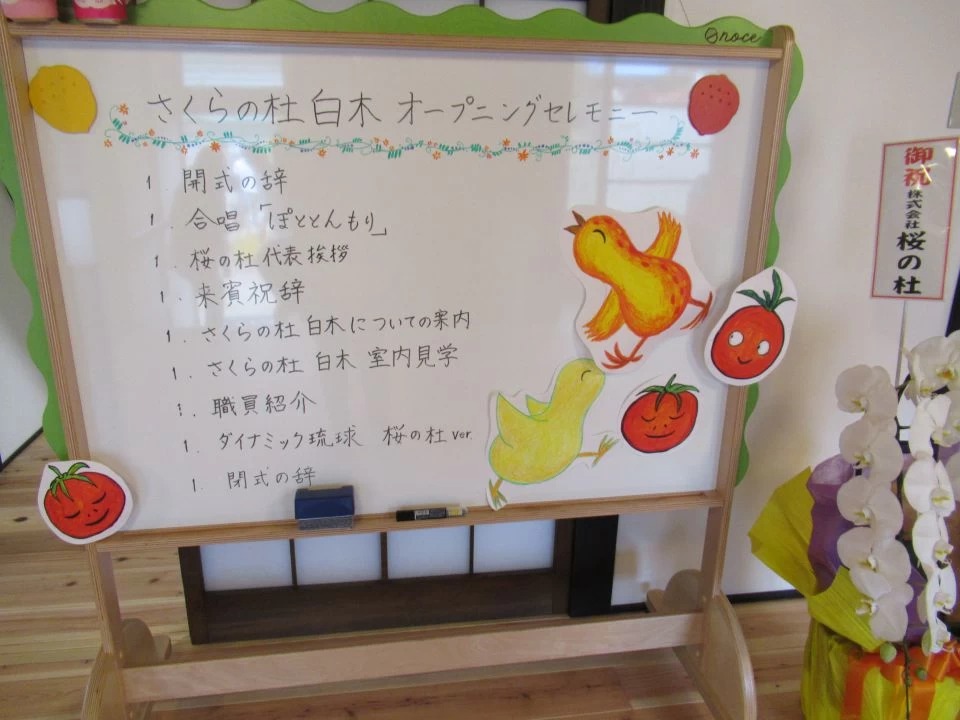 Onoce
さくらの杜 白木 オープニングセレモニー
1. 開式の辞
1. 合唱「ぽととんもり」
1. 桜の杜代表挨拶
1. 来賓祝辞
1. さくらの杜 白木についての案内
1. さくらの杜 白木 室内見学
1. 職員紹介
1. ダイナミック琉球 桜の杜ver.
1. 閉式の辞
御祝
株式会社
桜の杜